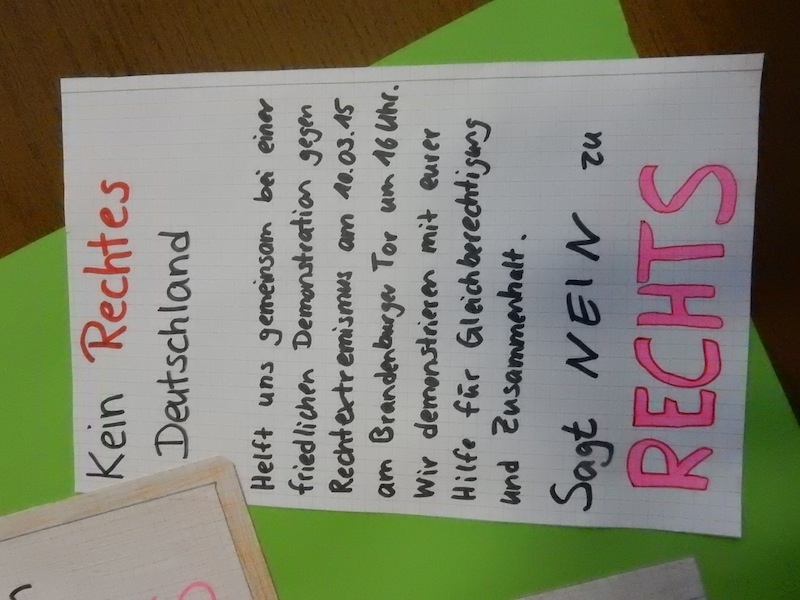 Kein Rechtes
Deutschland
Helft uns gemeinsam bei einer
friedlichen Demonstration gegen
Rechtextremismus am 10.03.15
am Brandenburger Tor um 16 Uhr.
Wir demonstrieren mit eurer
Hilfe für Gleichberechtigung
und Zusammenhalt.
Sagt NEIN zu
RECHTS